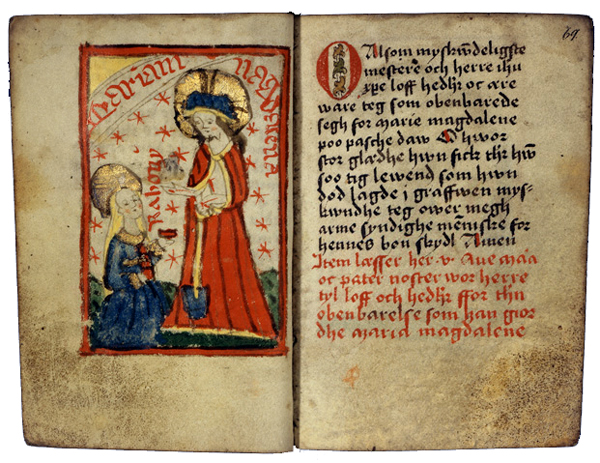 Rabony
O Alsom myskw̄deligste
mestere och herre ihu
xpe loff hedhr oc ære
ware teg som obenbarede
segh for marie magdalene
poo pasche daw O hwor
stor glædhe hwn fick thr hw̄
soo tig lewend som hwn
dod lagde j graffwen mys-
kwndhe teg ower megh
arme syndighe mēniske for
hennes bøn skyld Amen
Item læsser her .v. Aue maia
oc pater noster wor herre
tyl loff och hedhr ffor thn
obenbarelse som han gior
dhe maria magdalene